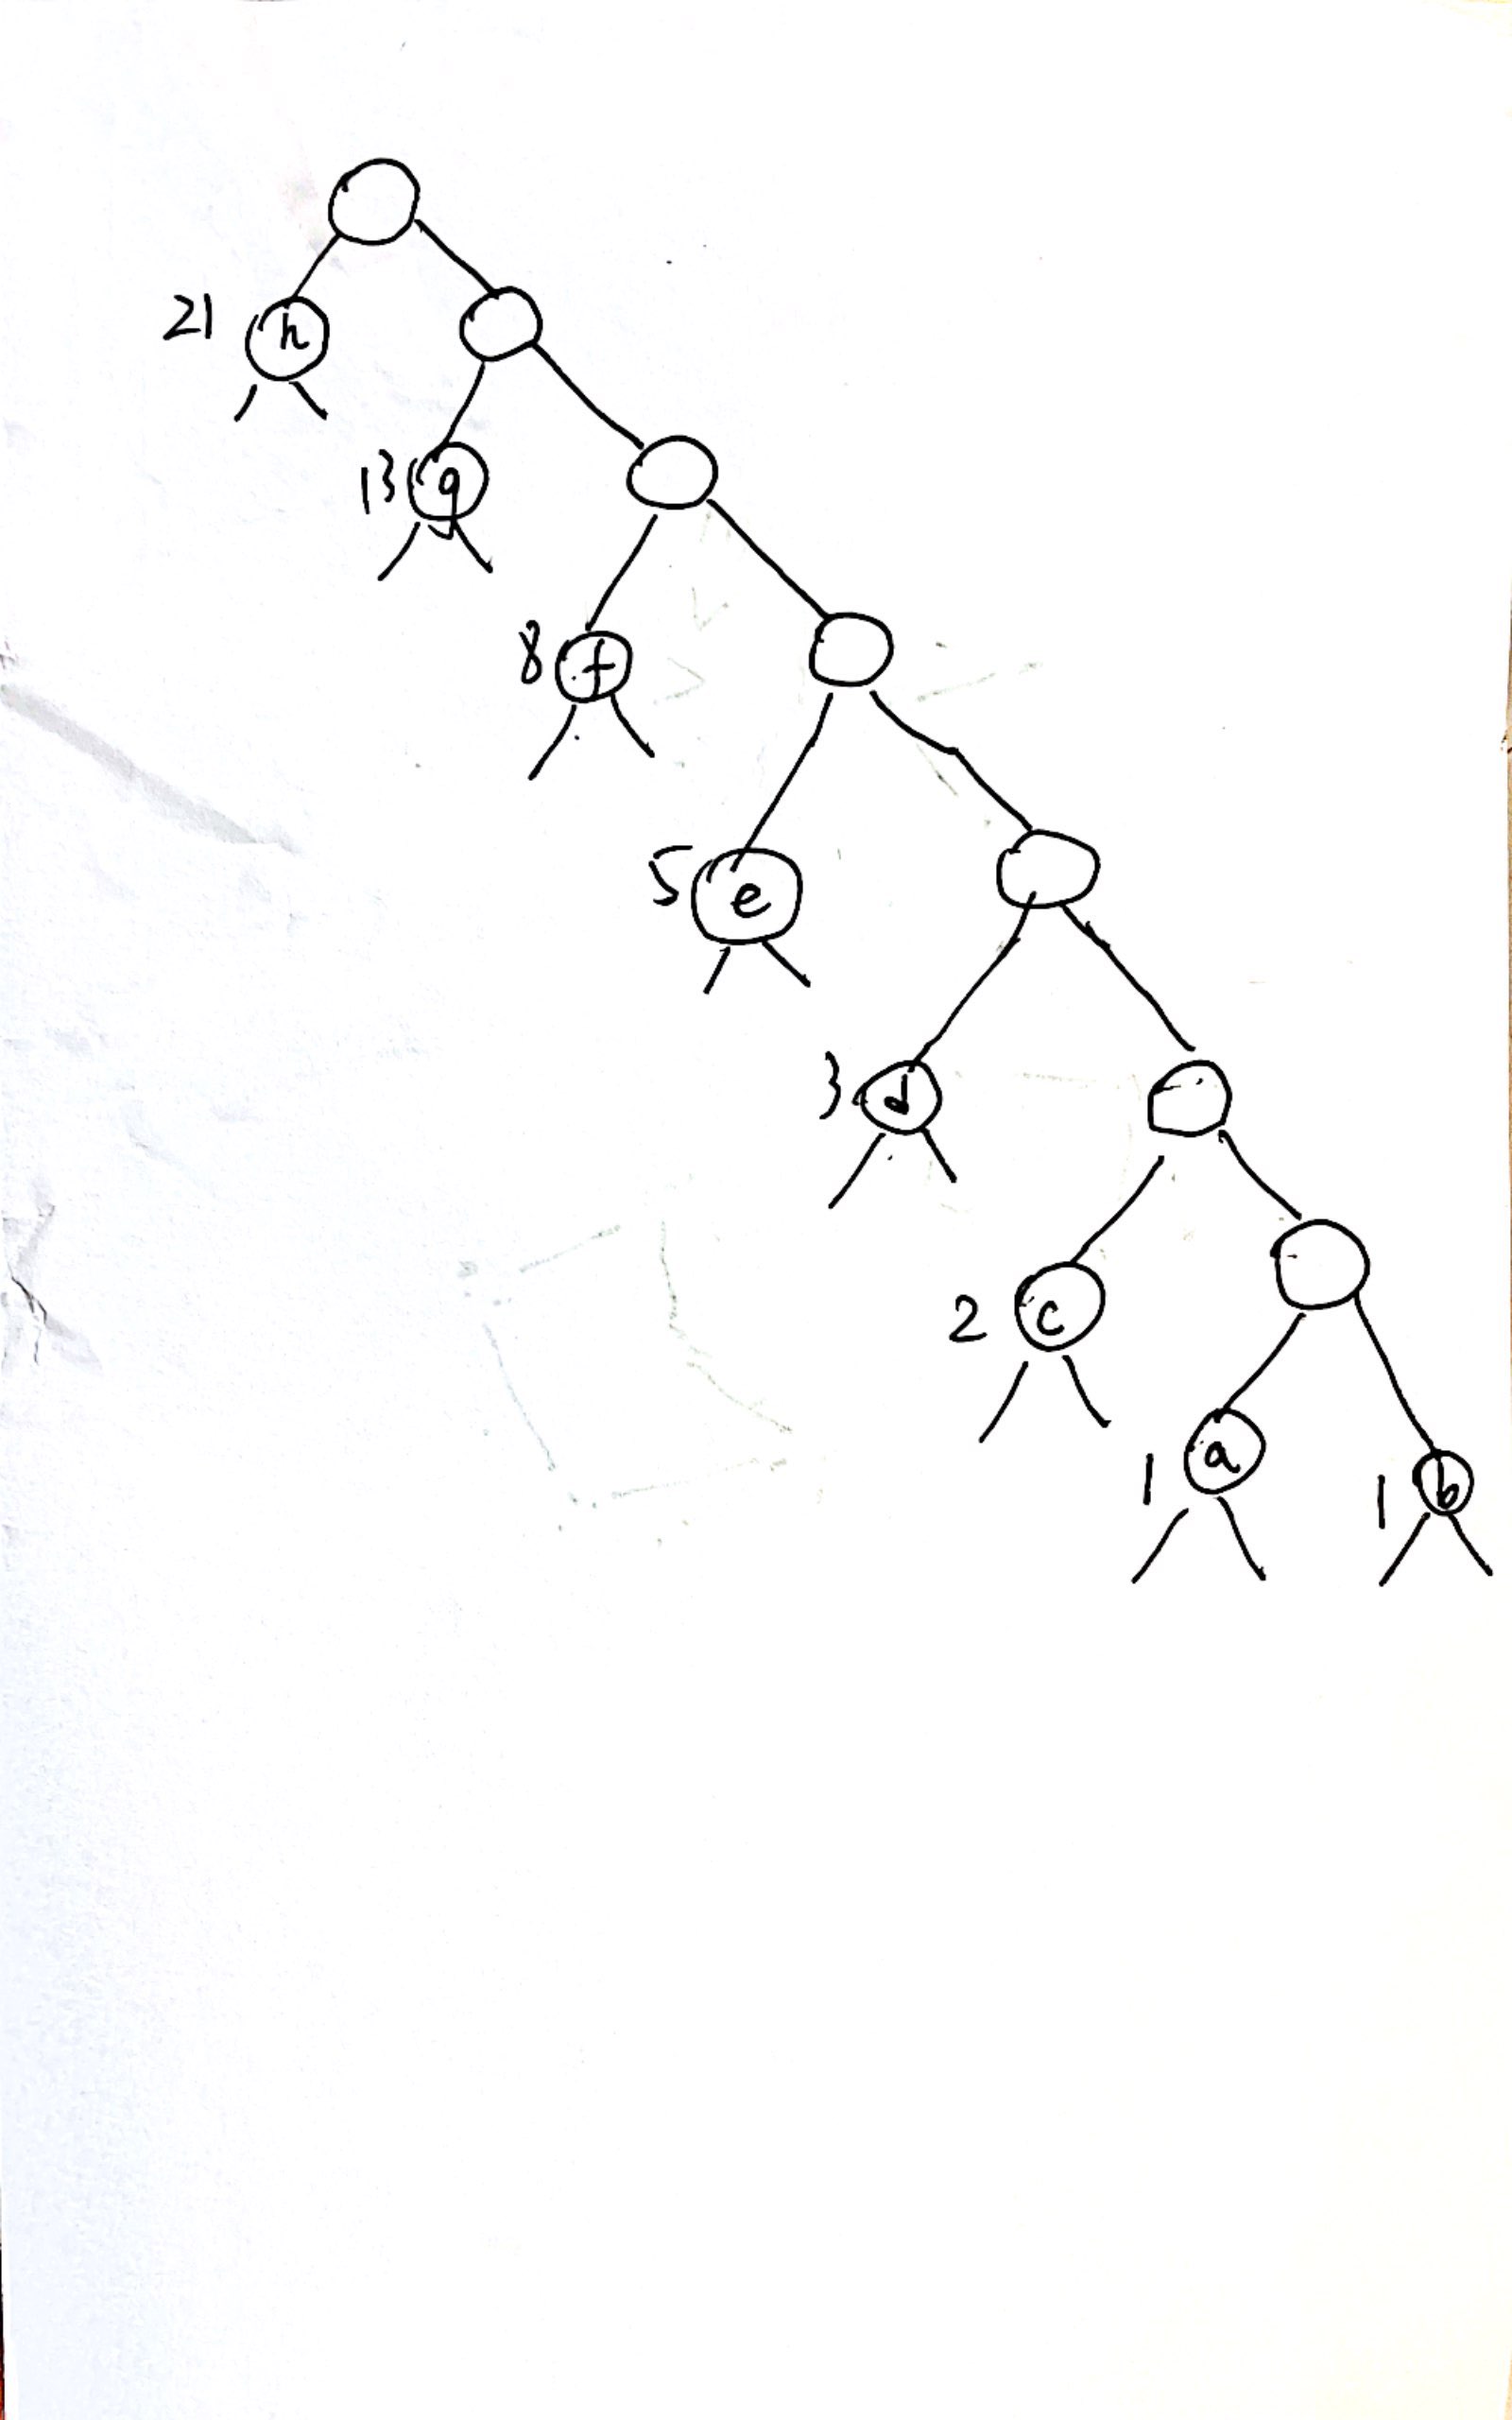 21 h
13 g
8 f
5 e
3 d
2 c
1 a
1 b